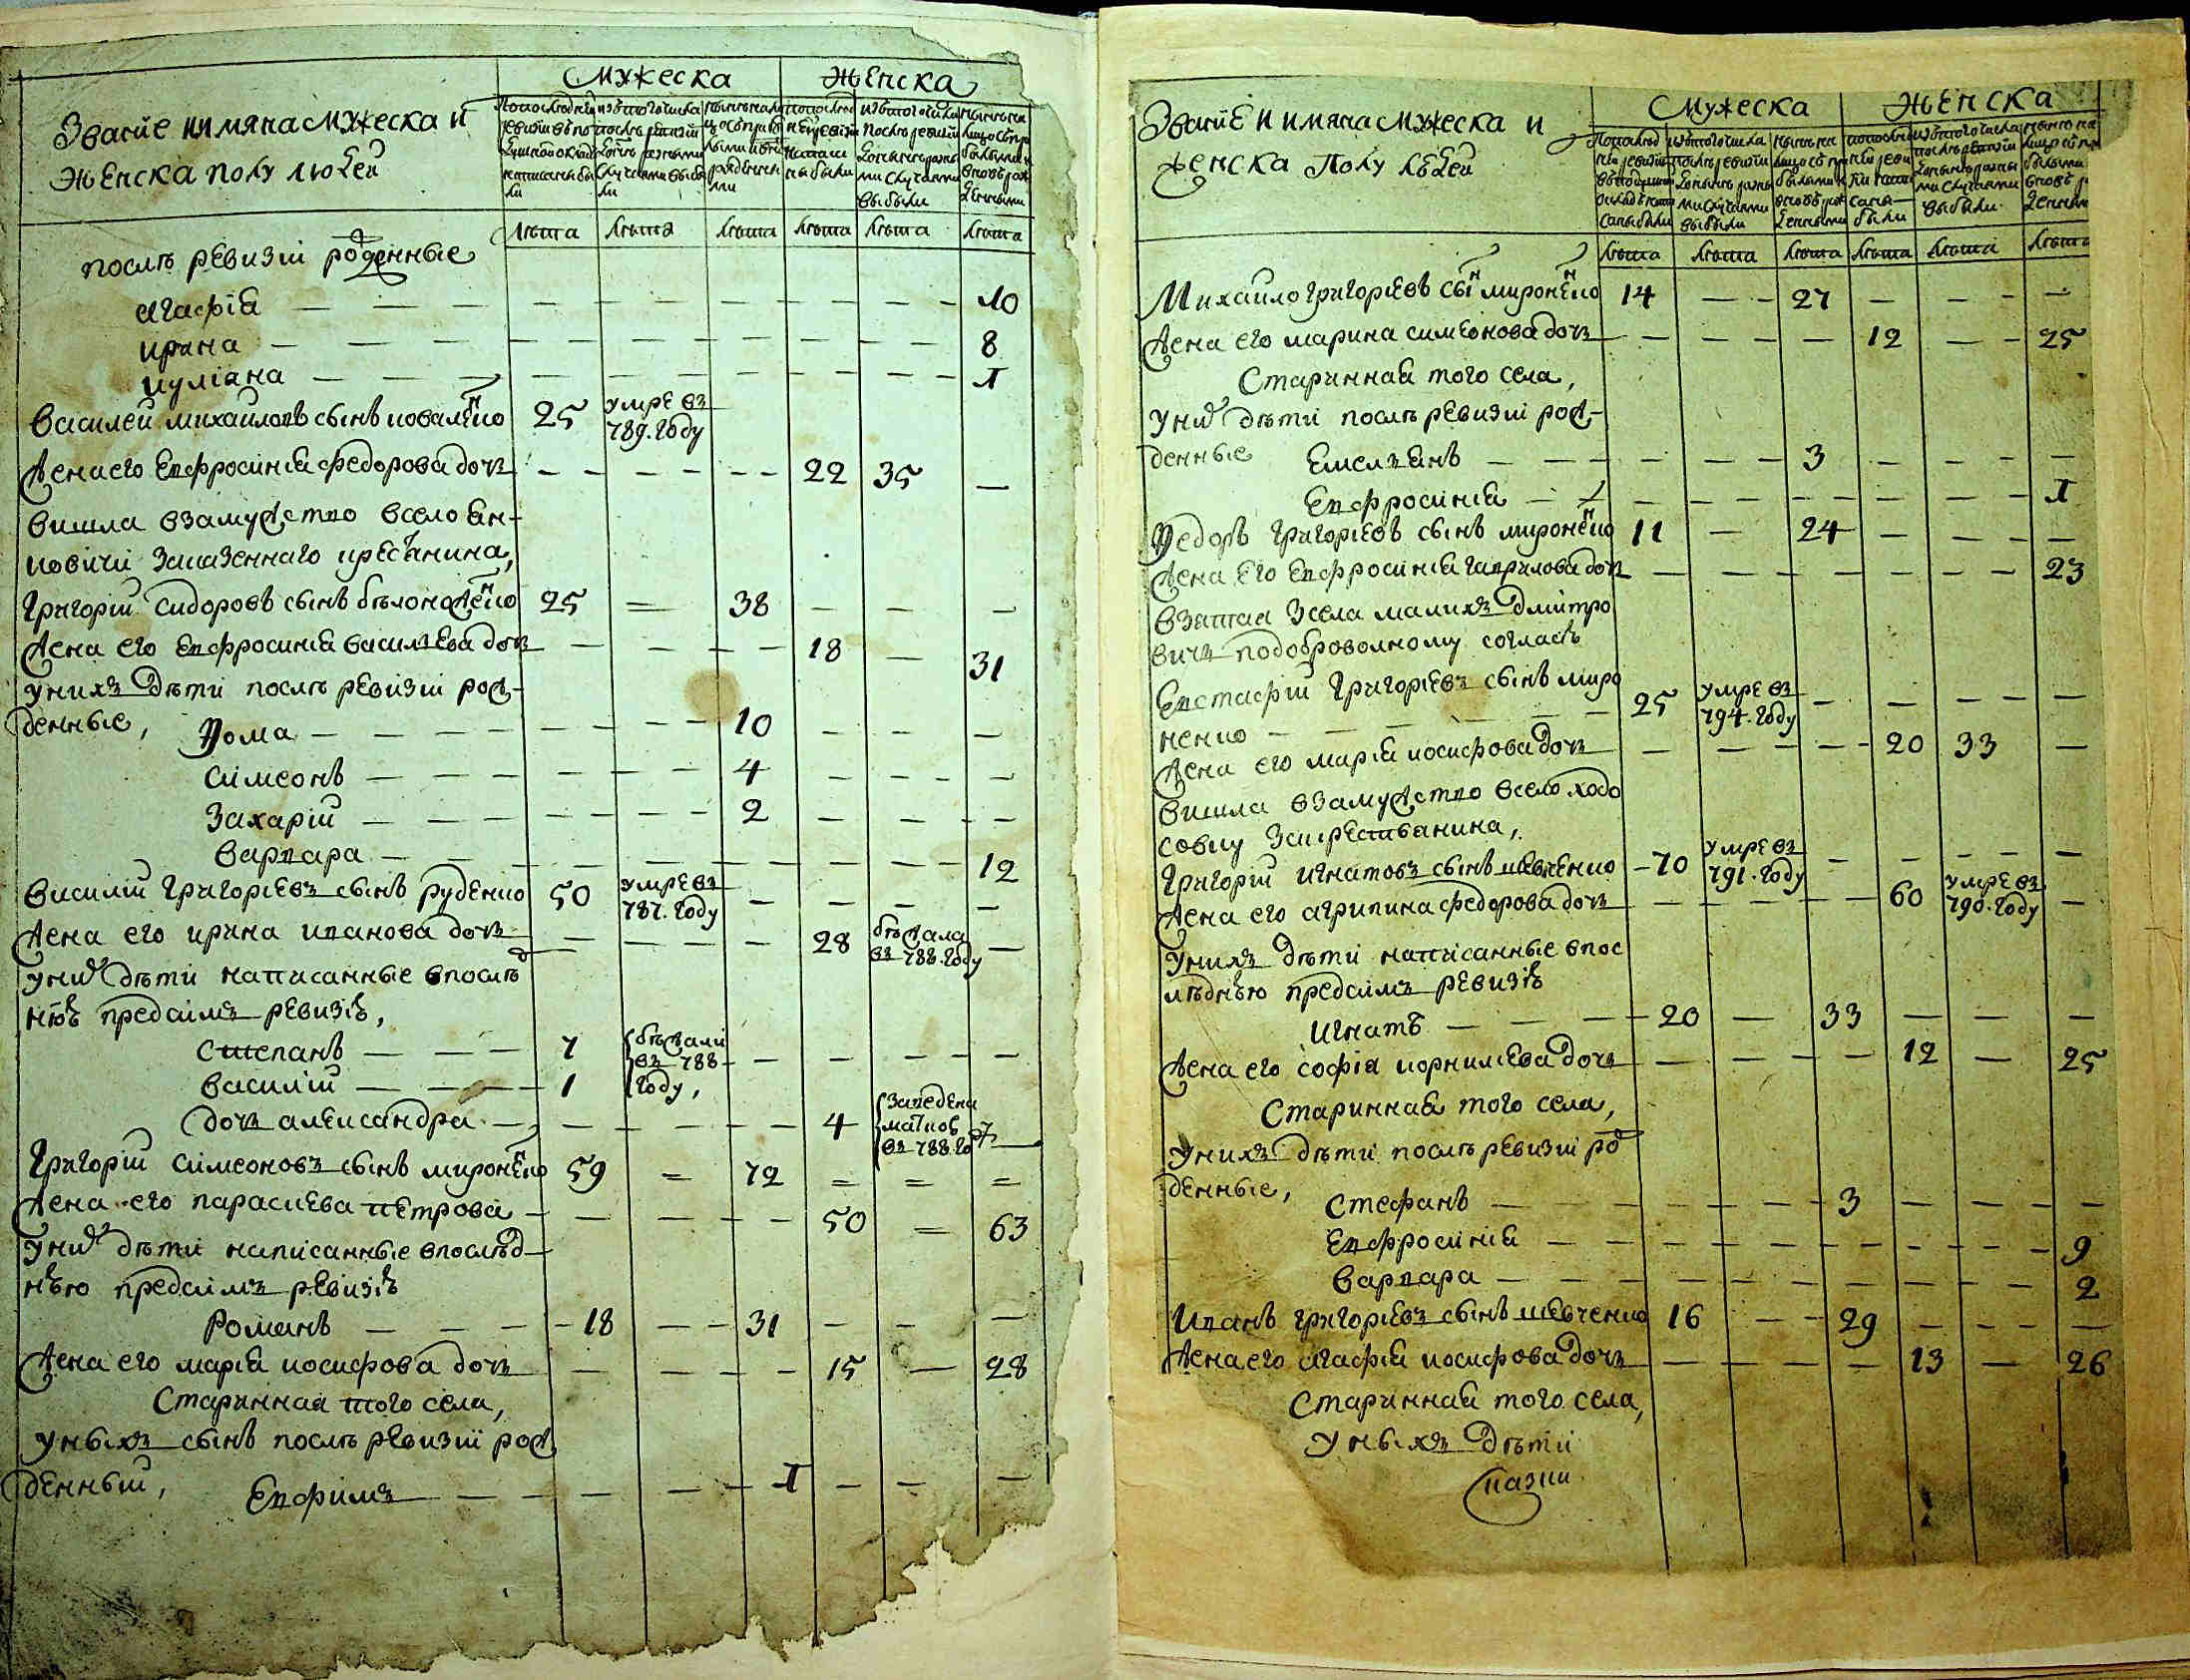 Мужеска Женска
Званіе и имяна мужеска и
женска полу людей
Лѣта Лѣта Лѣта Лѣта Лѣта Лѣта
послѣ ревизіи рожденные
Агафія — — — 10
ирина — — — 8
иуліана — — — 1
Василей михаиловъ сынъ коваленко 25 умре въ
789. году
Жена его Евфросинія федорова дочь — — — 22 35 —
вишла взамужство всело ян-
ковичи заказенного кресянина,
Григорій сидоровъ сынъ белоноженко 25 — 38 — — —
Жена его Евфросинія василева дочь — — — 18 — 31
уних дѣти послѣ ревизіи рож-
денные, Фома — — — 10 — — —
симеонъ — — — 4 — — —
Захарій — — — 2 — — —
варвара — — — 12
василій Григоріевъ сынъ руденко 50 умре въ
787. году — — — —
Жена его ирина иванова дочь — — — 28 бѣжала
въ 788. году —
уних дѣти написанные впослѣд
нюю предсимъ ревизію,
степанъ — — — 7 бѣжали
въ 788 — — — —
василій — — — 1 году,
дочь александра — — — 4 заведена
маткою
въ 788. году —
Григорій симеоновъ сынъ мироненко 59 = 72 = = =
Жена его параскева петрова — — — 50 = 63
уних дѣти написанные впослѣд-
нюю предсимъ ревизію
Романъ — — — 18 — — 31 — — —
Жена его марія иосифова дочь — — — 15 — 28
Старинная того села,
уных сынъ послѣ ревизіи рож
денный, Евфимъ — — — 1 — — —
Мужеска Женска
Званіе и имяна мужеска и
женска полу людей
Лѣта Лѣта Лѣта Лѣта Лѣта Лѣта
Михайло григоріевъ сынъ мироненко 14 — — 27 — — —
Жена его марина симеонова дочь — — — 12 — — 25
Старинная того села,
уних дѣти послѣ ревизіи рож-
денные Емельянъ — — — 3 — — —
Евфросинія — — — 1
Федоръ григоріевъ сынъ мироненко 11 — 24 — — —
Жена его Евфросинія гаврилова дочь — — — 23
взятая зсела малихъ дмитро
вичъ подоброволному согласію
Евстафій григоріевъ сынъ миро
ненко — — — 25 умре въ
794. году — — — —
Жена его марія иосифова дочь — — — 20 33 —
вишла взамужство всело ходо
совку закрестянина,
Григорій игнатовъ сынъ шевченко — 70 умре въ
791. году — — — —
Жена его агрипина федорова дочь — — — 60 умре въ
790. году —
уних дѣти написанные впос
лѣднюю предсимъ ревизію
игнатъ — — — 20 — 33 — — —
Жена его софія корниліева дочь — — — 12 — 25
Старинная того села,
уних дѣти послѣ ревизіи рож
денные, Стефанъ — — — 3 — — —
Евфросинія — — — 9
варвара — — — 2
Иванъ григоріевъ сынъ шевченко 16 — — 29 — — —
Жена его агафія иосифова дочь — — — 13 — 26
Старинная того села,
уных дѣти